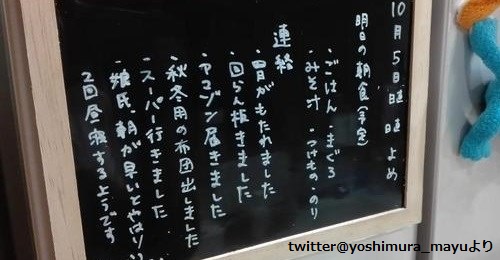 10月5日曜日 よめ
明日の朝食(予定)
・ごはん ・まぐろ
・みそ汁 ・つけもの ・のり
連絡
・胃がもたれました
・回らん板きました
・アマゾン届きました
・秋冬用の布団出しました
・スーパー行きました
・娘氏、朝が早いとやはり
2回昼寝するようです
twitter@yoshimura_mayuより